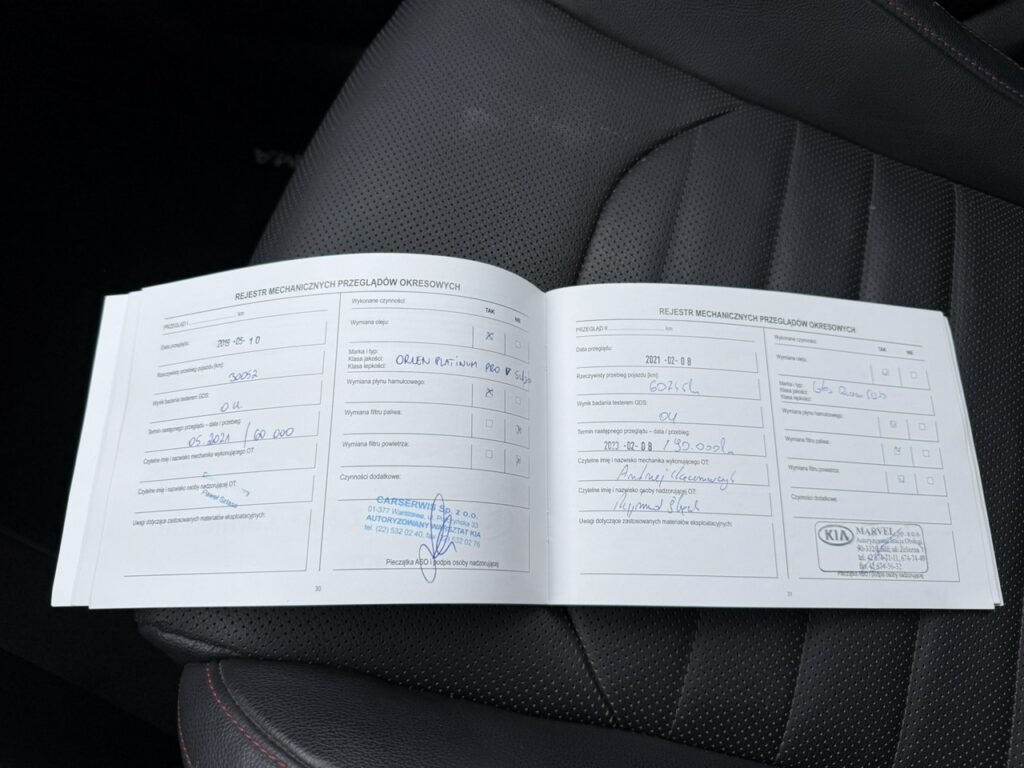 REJESTR MECHANICZNYCH PRZEGLĄDÓW OKRESOWYCH
PRZEGLĄD I km
Data przeglądu:
2019 -05- 10
Rzeczywisty przebieg pojazdu [km]:
30052
Wynik badania testerem GDS:
Termin następnego przeglądu – data / przebieg:
05.2021 / 60 000
Czytelne imię i nazwisko mechanika wykonującego OT:
Czytelne imię i nazwisko osoby nadzorującej OT:
Paweł
Uwagi dotyczące zastosowanych materiałów eksploatacyjnych:
Wykonane czynności:
TAK NIE
Wymiana oleju:
Marka i typ:
Klasa jakości:
Klasa lepkości:
ORLEN PLATINUM PRO
Wymiana płynu hamulcowego:
Wymiana filtru paliwa:
Wymiana filtru powietrza:
Czynności dodatkowe:
CARSERWIS Sp. z o.o.
01-377 Warszawa, ul. 33
AUTORYZOWANY WARSZTAT KIA
tel. (22) 532 02 40, 532 02 76
Pieczątka ASO i podpis osoby nadzorującej
30
REJESTR MECHANICZNYCH PRZEGLĄDÓW OKRESOWYCH
PRZEGLĄD II km
Data przeglądu:
2021 -02- 08
Rzeczywisty przebieg pojazdu [km]:
Wynik badania testerem GDS:
Termin następnego przeglądu – data / przebieg:
-02- 08 / 90.000
Czytelne imię i nazwisko mechanika wykonującego OT:
Andrzej
Czytelne imię i nazwisko osoby nadzorującej OT:
Uwagi dotyczące zastosowanych materiałów eksploatacyjnych:
Wykonane czynności:
TAK NIE
Wymiana oleju:
Marka i typ:
Klasa jakości:
Klasa lepkości:
Wymiana płynu hamulcowego:
Wymiana filtru paliwa:
Wymiana filtru powietrza:
Czynności dodatkowe:
KIA MARVEL Sp. z o.o.
Autoryzowana Stacja Obsługi
ul. Żeliwna 7
Pieczątka ASO i podpis osoby nadzorującej
31